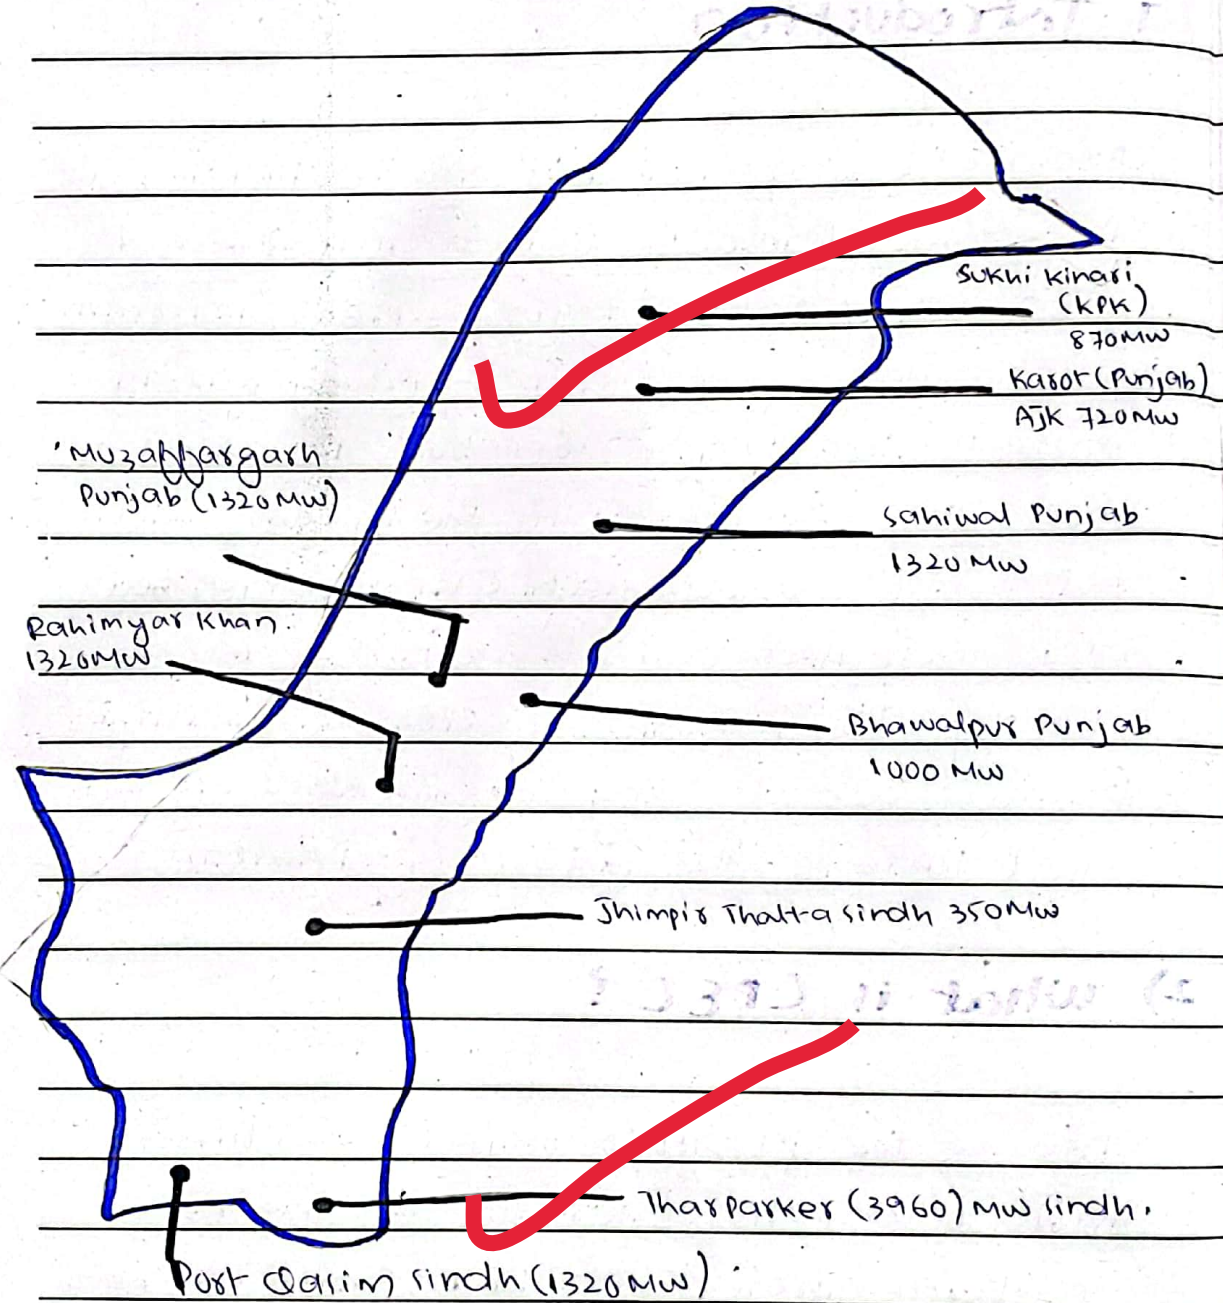 Sukhi Kinari
(KPK)
870MW
Karot (Punjab)
AJK 720MW
Muzaffargarh
Punjab (1320MW)
Sahiwal Punjab
1320MW
Rahimyar Khan.
1320MW
Bhawalpur Punjab
1000 MW
Jhimpir Thatta Sindh 350MW
Tharparker (3960) MW Sindh.
Port Qasim Sindh (1320MW)